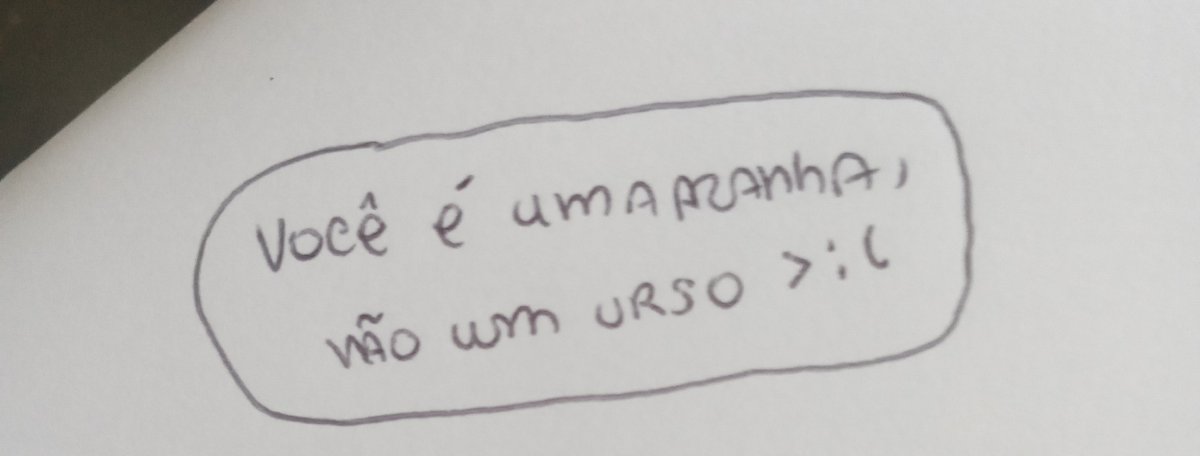 Você é uma aranha,
não um urso >:(